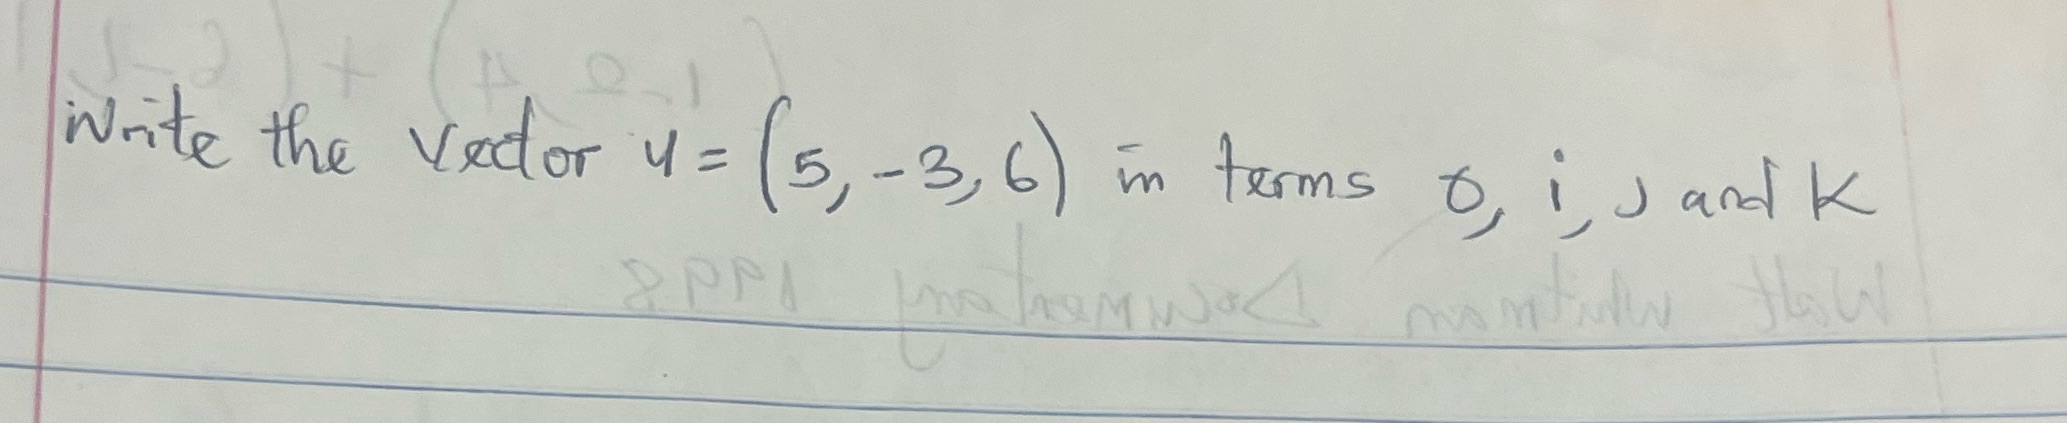 Write the vector u = (5, -3, 6) in terms o, i, j and k